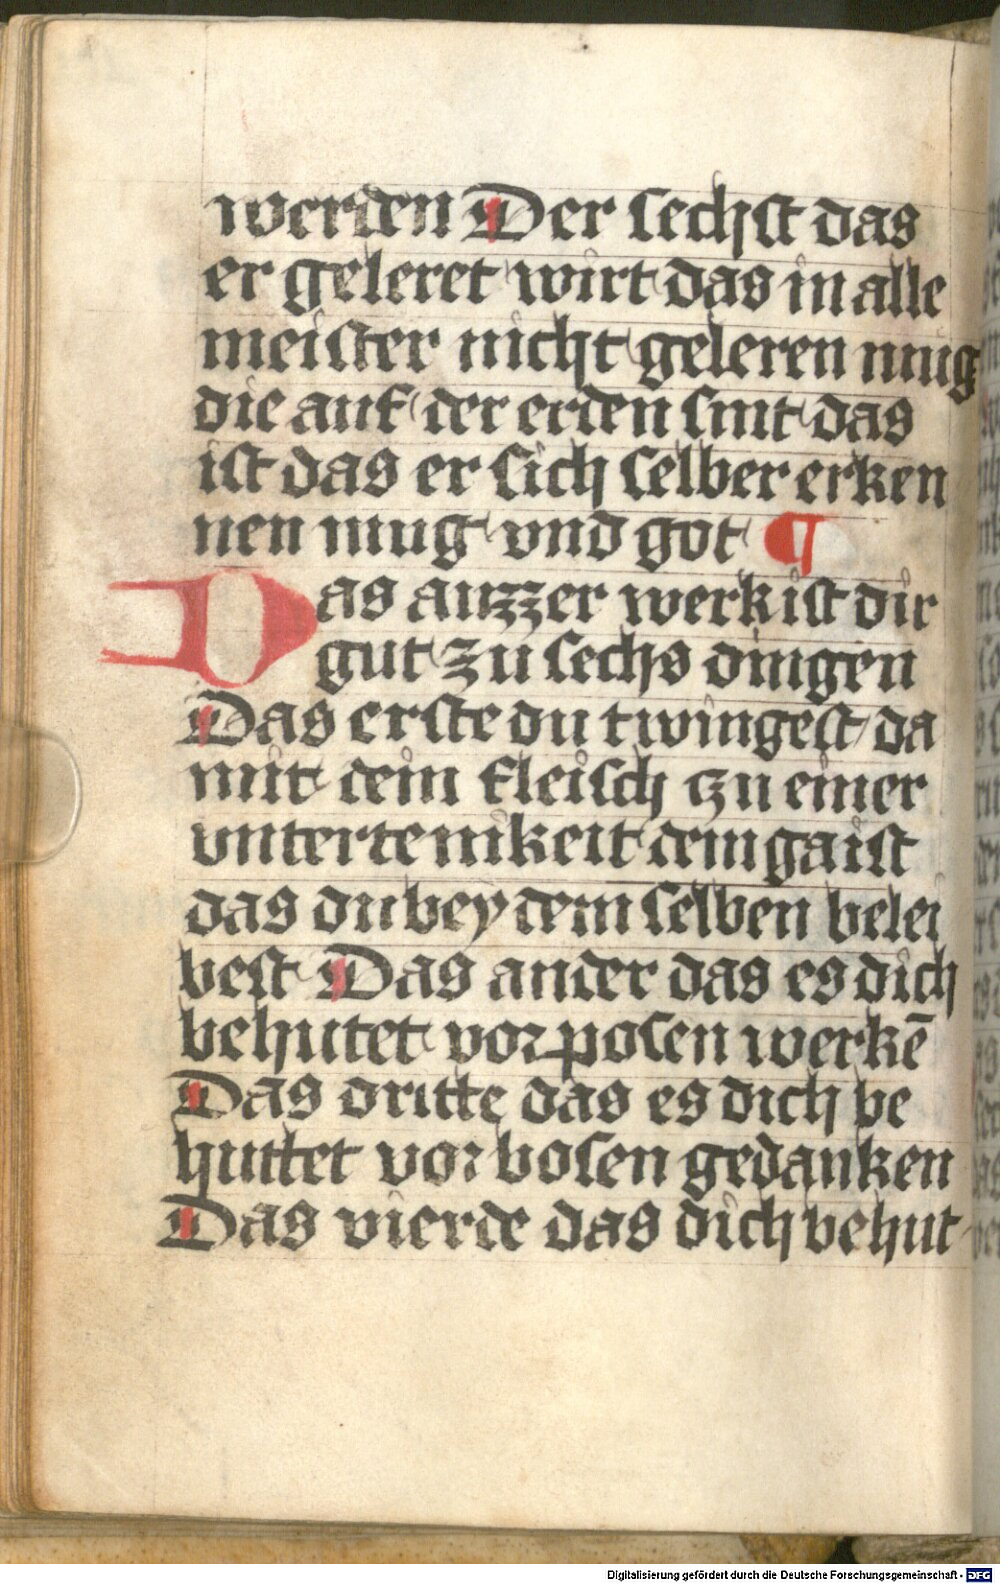 werden Der sechst das
er geleret wirt das in alle
meister nicht geleren mug
die auf der erden sint das
ist das er sich selber erken
nen mug vnd got ¶
Das auzzer werk ist dir
gut zu sechs dingen
Das erste du twingest da
mit dein fleisch czu einer
vntertenikeit dem gaist
das du bey dem selben belei
best Das ander das es dich
behutet vor posen werkē
Das dritte das es dich be
huttet vor bosen gedanken
Das vierde das dich behut
Digitalisierung gefördert durch die Deutsche Forschungsgemeinschaft - DFG